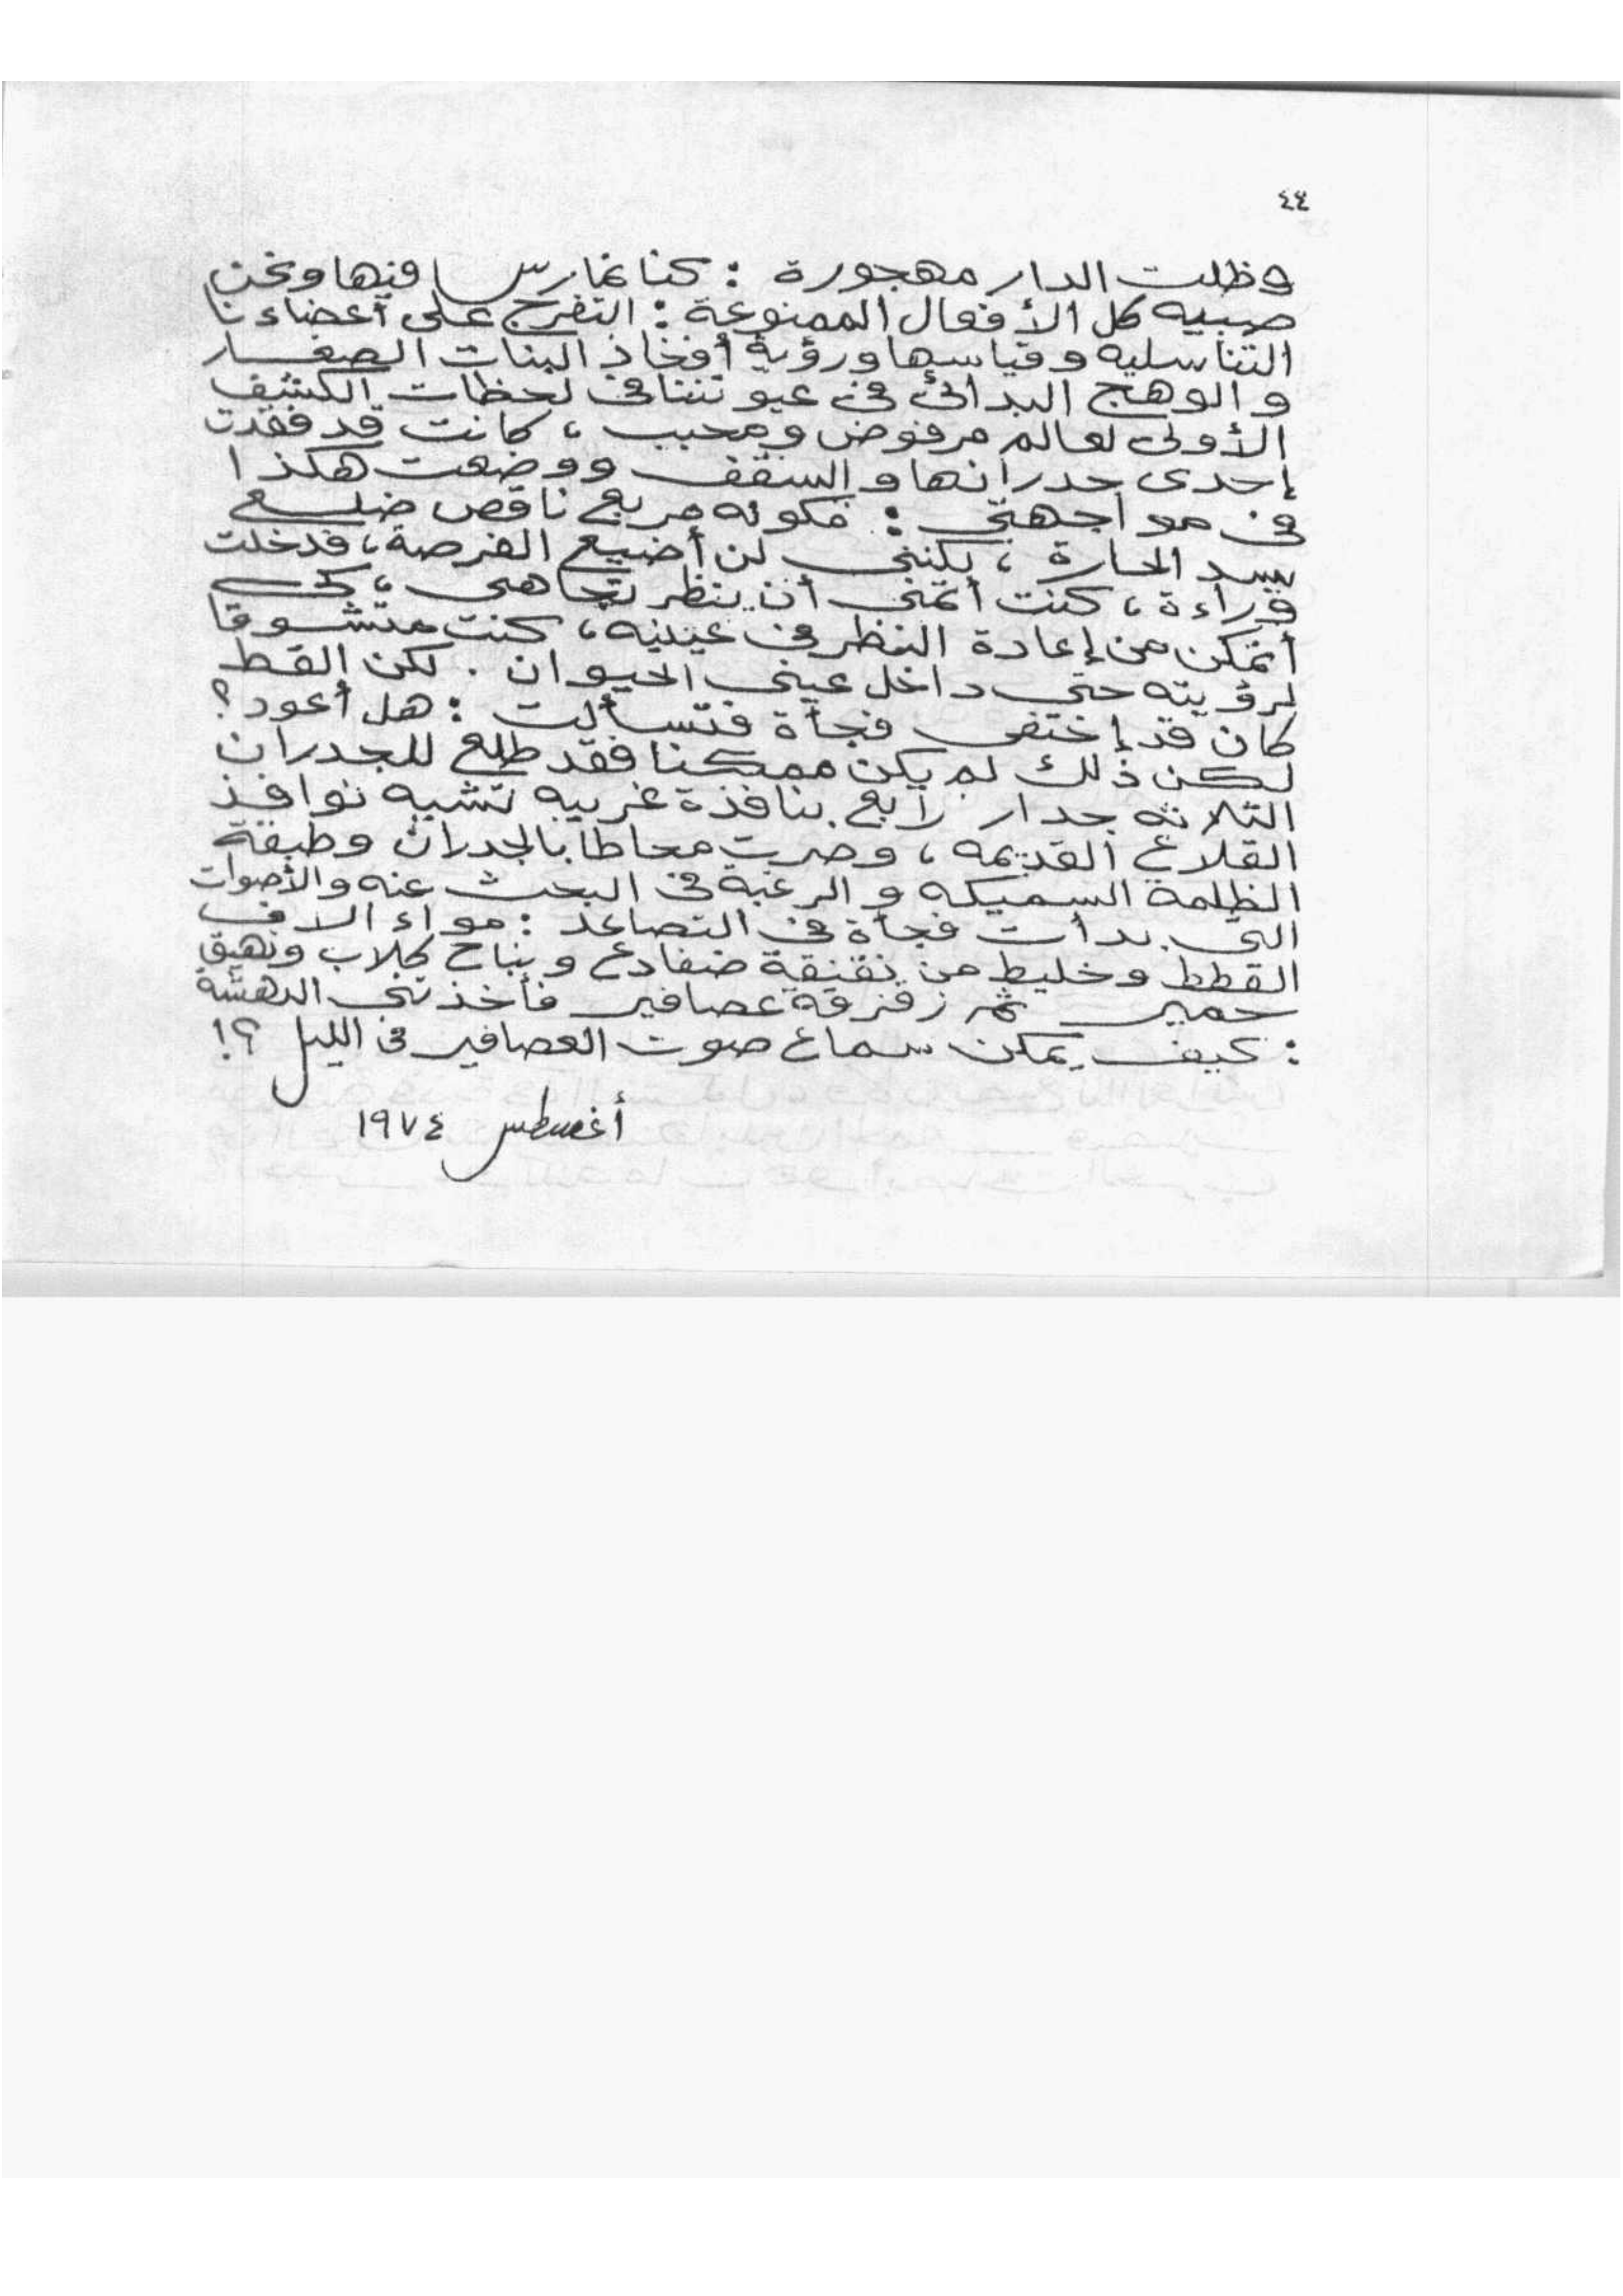 ٤٤
وظلت الدار مهجورة : كنا نمارس فيها ونحن
صبيه كل الأفعال الممنوعة : التفرج على أعضاءنا
التناسليه وقياسها ورؤية أفخاذ البنات الصغار
والوهج البدائى فى عيوننا فى لحظات الكشف
الأولى لعالم مرفوض ومحبب ، كانت قد فقدت
إحدى جدرانها والسقف ووضعت هكذا
فى مواجهتى : مكونه مربع ناقص ضلع
يسد الحارة ، لكننى لن أضيع الفرصة ، فدخلت
وراءة ، كنت أتمنى أن ينظر تجاهى ، كى
أتمكن من إعادة النظر فى عينيه ، كنت متشوقا
لرؤيته حتى داخل عينى الحيوان . لكن القط
كان قد إختفى فجأة فتسألت : هل أعود ؟
لكن ذلك لم يكن ممكنا فقد طلع للجدران
الثلاثه جدار رابع بنافذة غريبه تشبه نوافذ
القلاع القديمه ، وصرت محاطا بالجدران وطبقة
الظلمة السميكه والرغبة فى البحث عنه والأصوات
التى بدأت فجأة فى التصاعد : مواء الاف
القطط وخليط من نقنقة ضفادع ونباح كلاب ونهيق
حمير ثم زقزقة عصافير فأخذتنى الدهشة
: كيف يمكن سماع صوت العصافير فى الليل ؟!
أغسطس ١٩٧٤